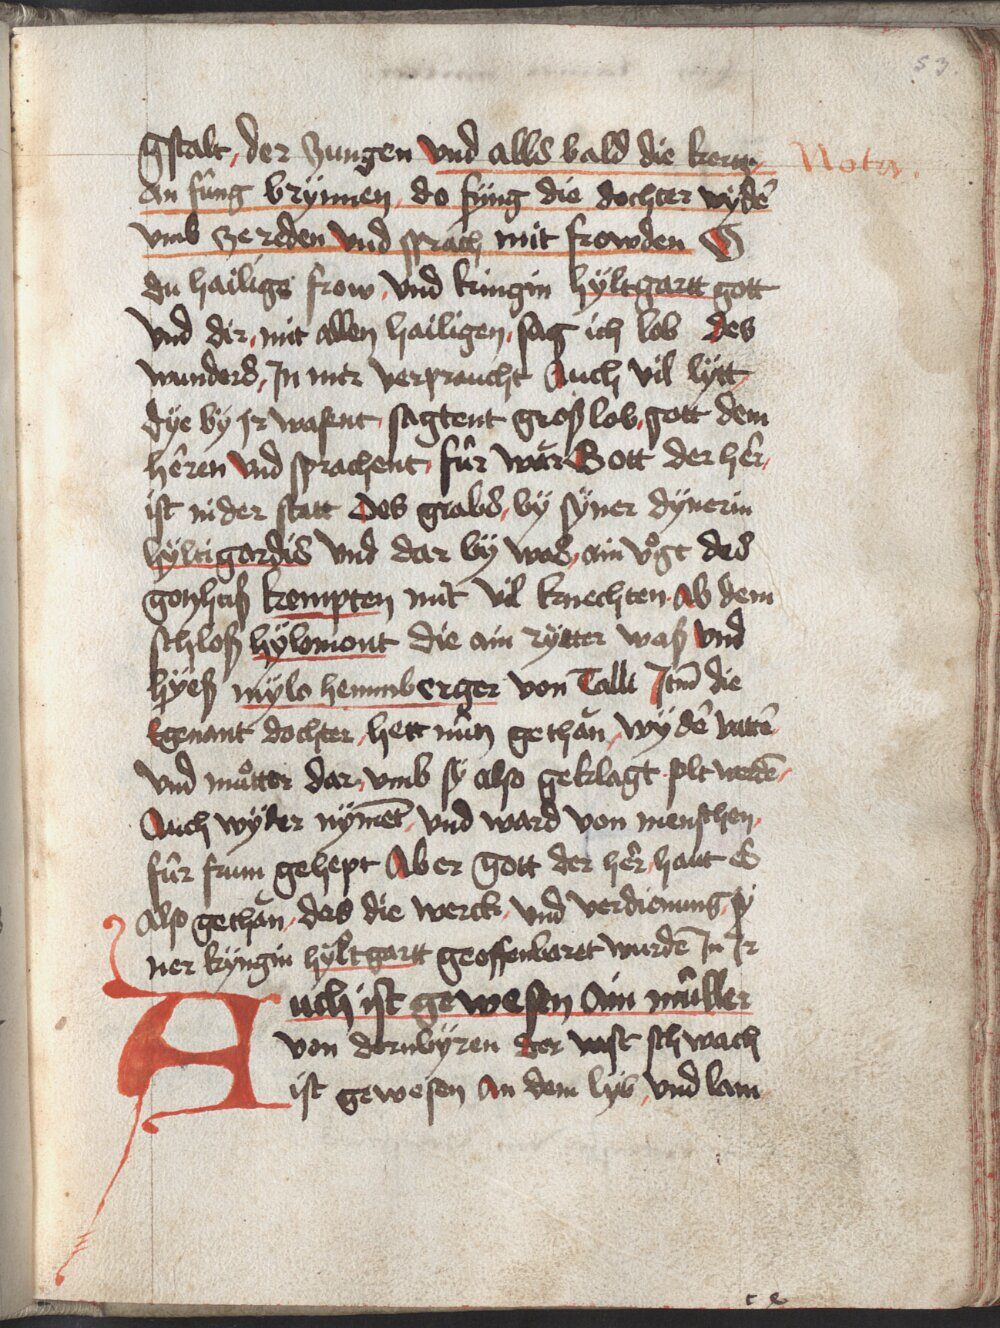 53.
gstalt, der zungen vnd alls bald die kertz Nota.
an fûng brÿnnen, do fûng die dochter wÿdē
vmb ze reden vnd sprach mit frowden O
du hailige frow, vnd küngin hÿltgartt gott
vnd dir, mit allen hailigen, sag ich lob des
wunders, In mir verpraucht Auch vil lÿtt,
dÿe bÿ jr warent, sagtent groß lob, gott dem
hêren vnd sprachent, fûr war Gott der hêr,
ist in der statt des grabs, bÿ sÿner dÿnerin
hÿltigardis vnd dar bÿ was, ain vogt des
gotzhuß kempten mit vil knechten, ab dem
schloß hÿlomont die ain rÿtter waß vnd
hÿeß mÿlo hemmberger von Talli Itm̄ die
Egenant dochter, hett nûn gethän, wÿdē vattē
vnd muͦtter dar, vmb sÿ also geklagt solt werdē,
Auch wÿder nÿmēt, vnd ward von menschen,
fûr frum gehept Aber gott der hêr, haut es
also gethän, das die werck, vnd verdienung, sÿ
ner kÿngin hÿltgartt geoffenbaret wurdē In Ir
Auch ist gewesen Ain mûller
von dornbÿren der vast schwach
ist gewesen An dem lÿb, vnd lam